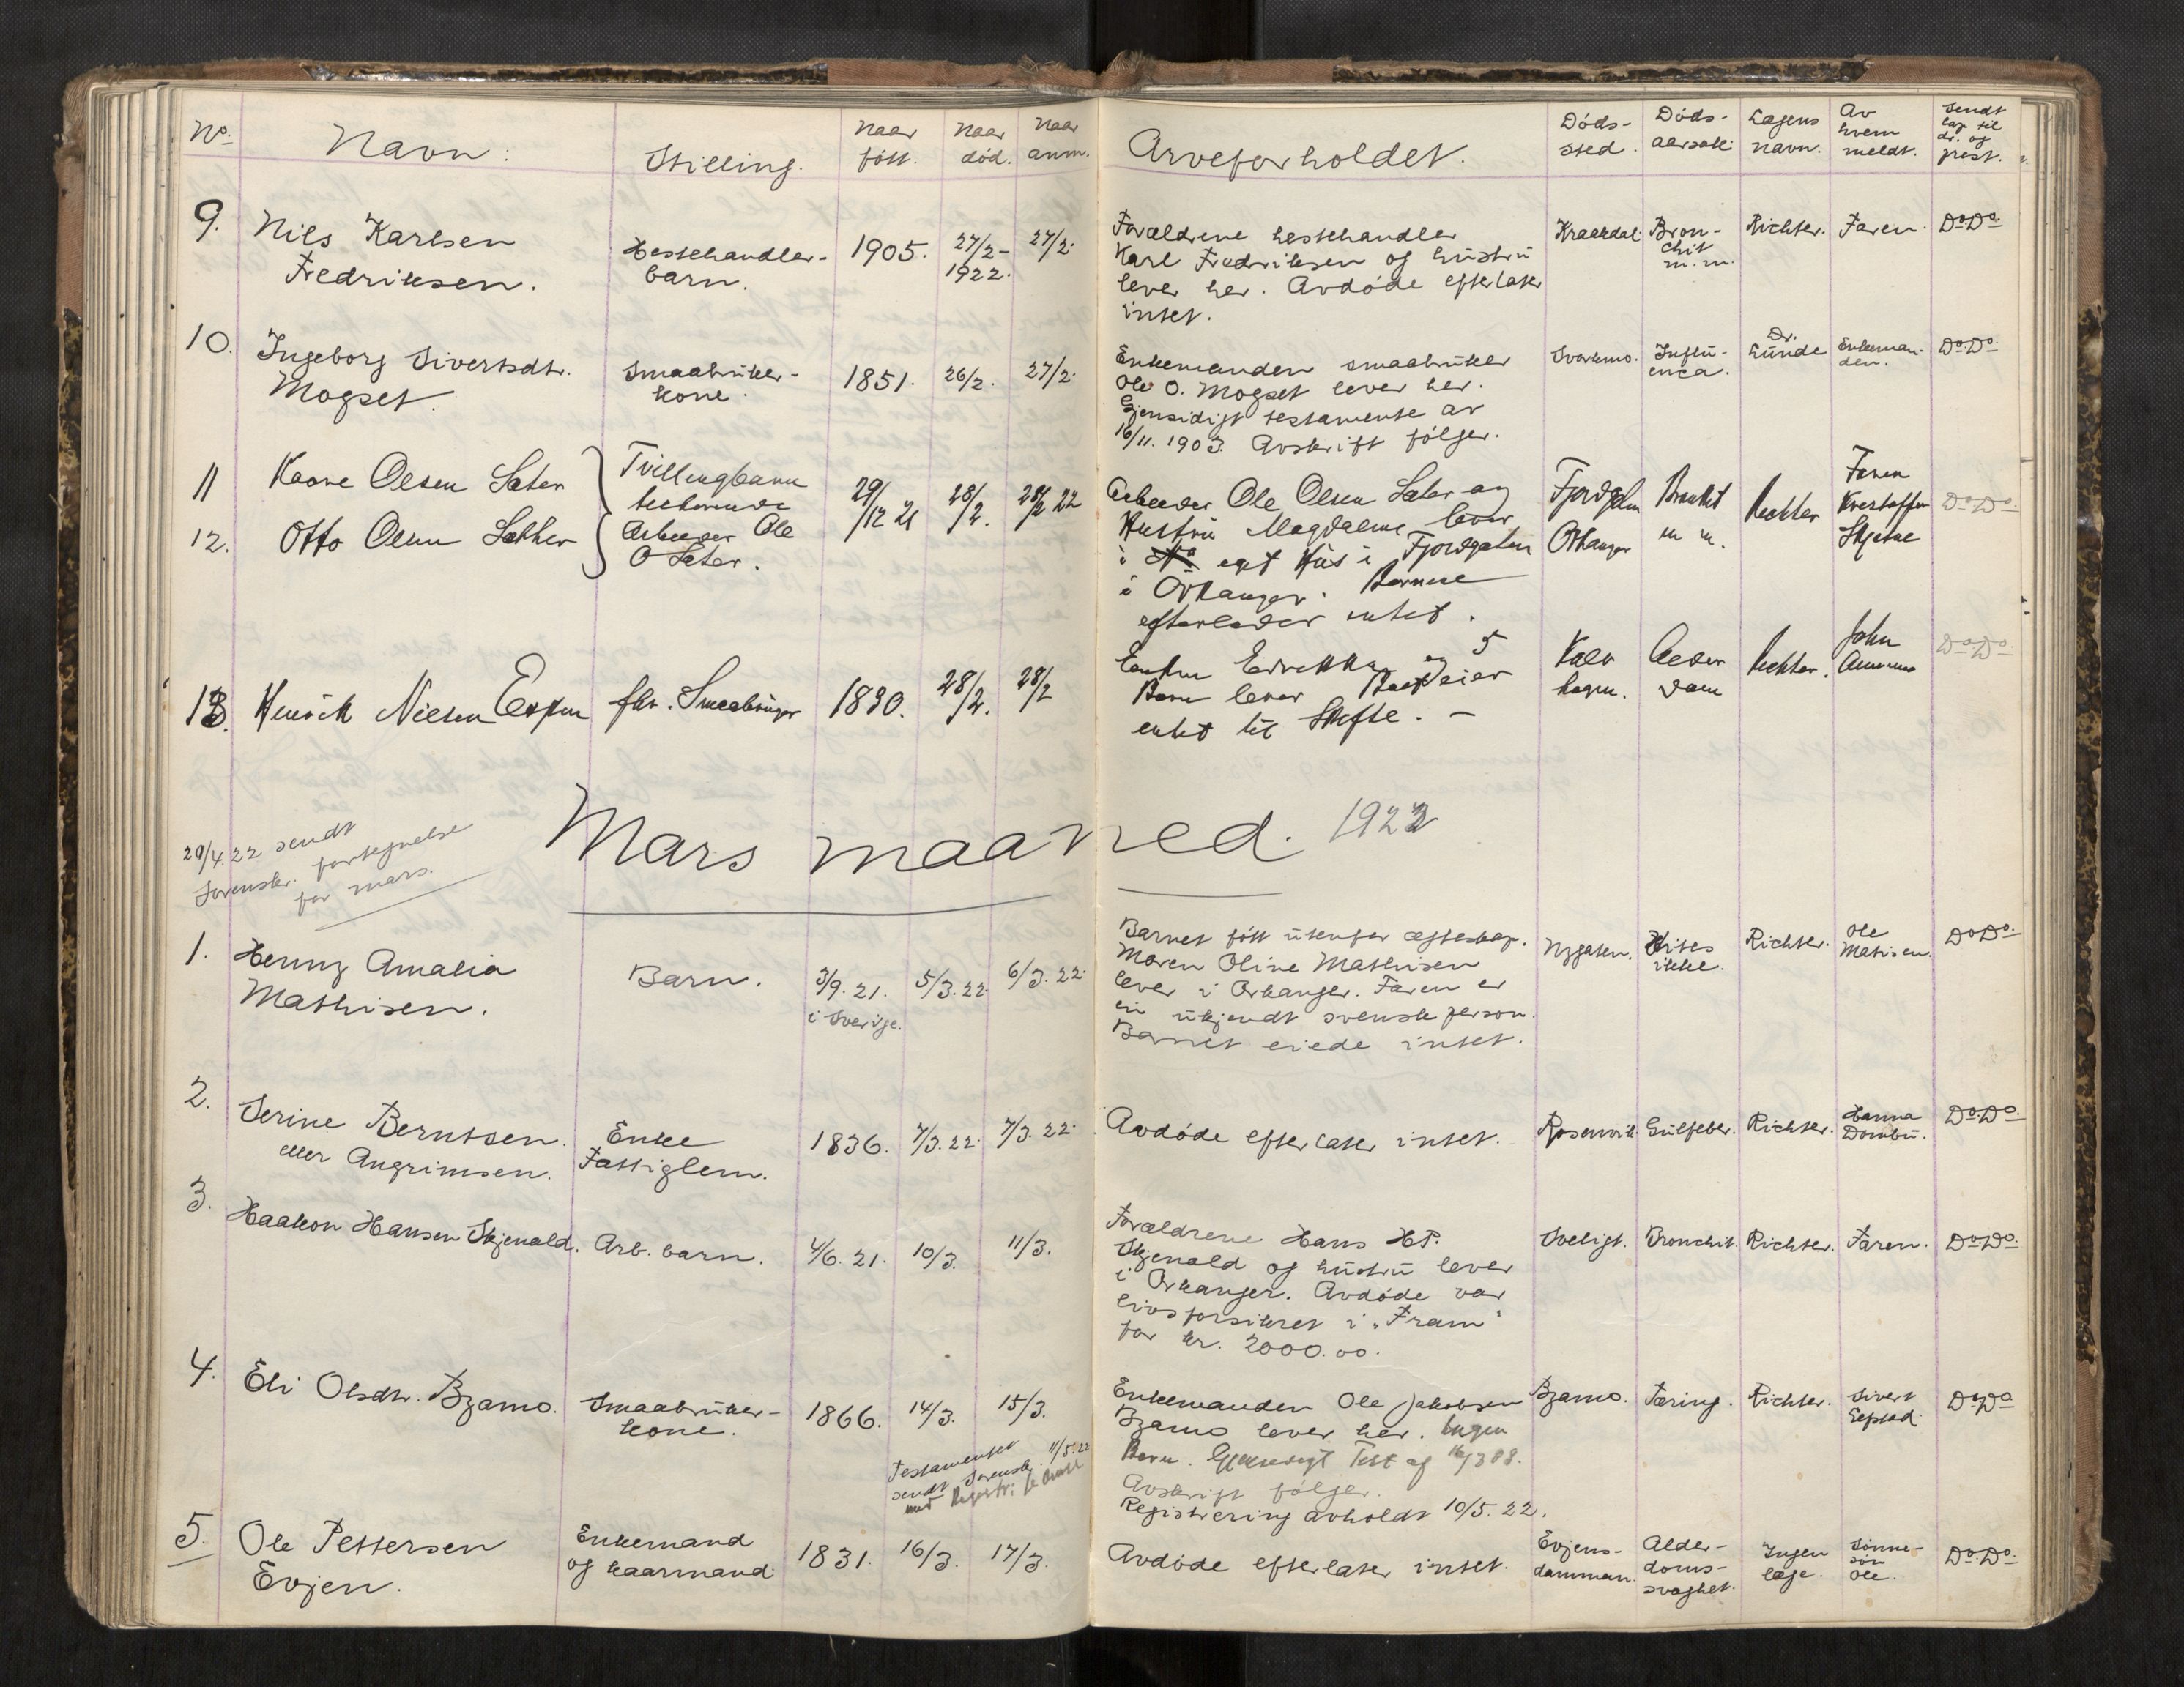 No. Navn: Stilling. Naar født. Naar død. Naar anm. Arveforholdet. Døds- sted. Døds- aarsak: Lægens navn. Av hvem meldt. Sendt lap til dr. og prest.
9. Nils Karlsen
Fredriksen.
Hestehandler-
barn.
1905.
27/2-
1922.
27/2.
Forældrene hestehandler
Karl Fredriksen og hustru
lever her. Avdøde efterlater
intet.
Kraakdal.
Bron-
chit
m.m.
Richter.
Faren.
Do Do
10. Ingeborg Sivertsdtr.
Mogset.
Smaabruker-
kone.
1851.
26/2.
27/2.
Enkemanden smaabruker
Ole O. Mogset lever her.
Gjensidigt testamente av
16/11. 1903. Avskrift følger.
Svorkmo.
Influ-
enca.
Dr.
Lunde
Enkeman-
den.
Do Do
11 Kaare Olsen Sæter
12. Otto Olsen Sæther
Tvillingbarn
Arbeider Ole
O Sæter.
29/12 21
28/2.
28/2 22
Arbeider Ole Olsen Sæter og
Hustru Magdalene lever
i eget Hus i Fjordgaten
i Orkanger. Barnene
efterlader intet.
Fjordgaten
Orkanger
Bronkit
m m.
Richter
Faren
Do Do.
13. Henrik Nielsen
fhv. Smaabruger
1830.
28/2.
28/2
Enken og 5
Barn lever
intet til Skifte. -
Alder
dom
Richter.
John
Do Do
Mars maaned. 1922
29/4.22 sendt
Sorenskr. fortegnelse
for mars.
1. Henny Amalia
Mathisen.
Barn.
3/9. 21.
i Sverige.
5/3. 22.
6/3. 22.
Barnet født utenfor ægteskap.
Moren Oline Mathisen
lever i Orkanger. Faren er
en ukjendt svensk person.
Barnet eiede intet.
Nygaten.
Vites
ikke.
Richter.
Ole
Matisen.
Do Do.
2. Serine Berntsen.
eller Angrimsen.
Enke
Fattiglem.
1836.
7/3. 22.
7/3. 22.
Avdøde efterlater intet.
Rosenvik
Gulfeber.
Richter.
Hanna
Dombu.
Do Do.
3. Haakon Hansen Skjenald.
Arb. barn.
4/6. 21.
10/3.
11/3.
Forældrene Hans H.P.
Skjenald og hustru lever
i Orkanger. Avdøde var
livsforsikret i „Fram"
for kr. 2000.00.
Bronchit.
Richter.
Faren.
Do Do.
4. Eli Olsdtr. Byamo.
Smaabruker-
kone.
1866.
14/3.
15/3.
Enkemanden Ole Jakobsen
Byamo lever her. Ingen
Barn. Gjensidigt Test af 16/3 08.
Avskrift følger.
Registrering avholdt 10/5. 22.
Testamentet
sendt Sorenskr. 11/5. 22
med Registr.
Byamo.
Tæring.
Richter.
Sivert
Do Do
5. Ole Pettersen
Evjen.
Enkemand
og kaarmand.
1831.
16/3.
17/3.
Avdøde efterlater intet.
Evjens-
dammen.
Alder-
doms-
svaghet.
Ingen
læge.
Sønne-
søn
Ole.
Do Do.